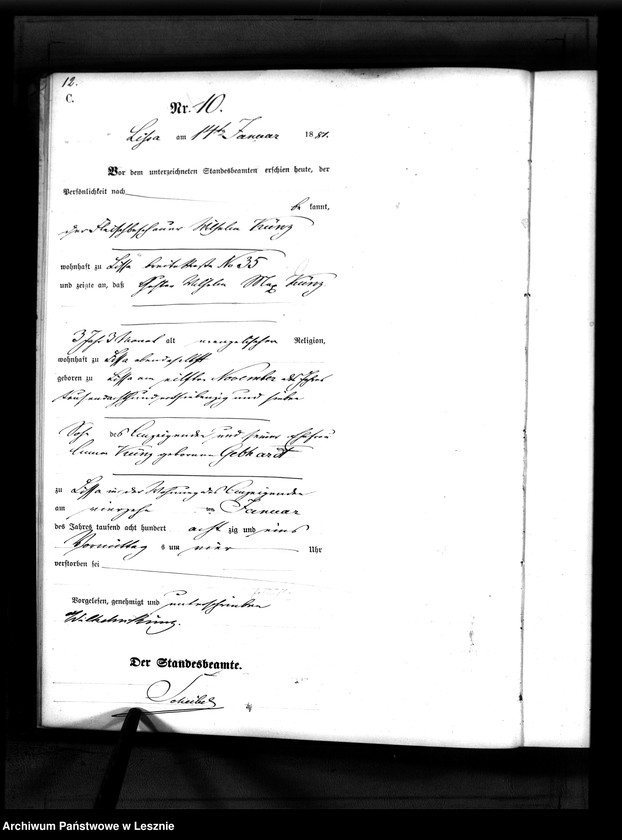 12.
C.
Nr. 10.
Lissa am 14ten Januar 1881.
Vor dem unterzeichneten Standesbeamten erschien heute, der
Persönlichkeit nach
be kannt,
der Fleischbeschauer Wilhelm Künz
wohnhaft zu Lissa breite Straße No 35
und zeigte an, daß Gustav Wilhelm Max Künz
3 Jahr 3 Monat alt evangelischer Religion,
wohnhaft zu Lissa ebendaselbst
geboren zu Lissa am elften November des Jahres
tausend achthundert siebenzig und sieben
Sohn des Anzeigenden und seiner Ehefrau
Künz geborene Gebhardt
zu Lissa in der Wohnung des Anzeigenden
am vierzehn ten Januar
des Jahres tausend acht hundert acht zig und eins
Vormittag s um vier Uhr
verstorben sei
Vorgelesen, genehmigt und unterschrieben
Wilhelm Künz.
Der Standesbeamte.
Scheibel
Archiwum Państwowe w Lesznie